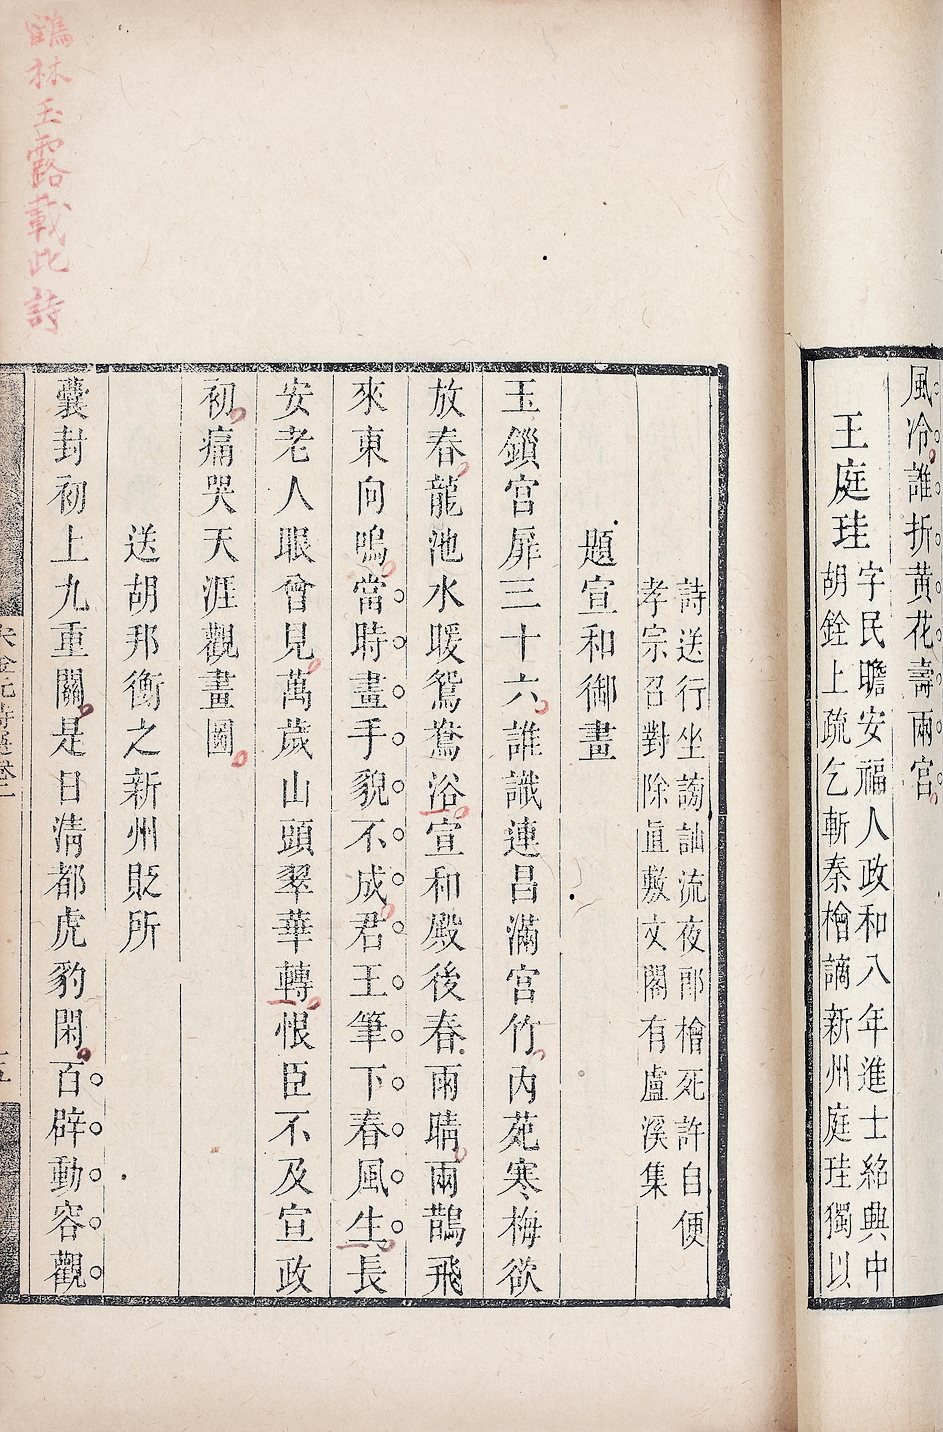 風冷誰折黄花壽兩宮
王庭珪
字民瞻安福人政和八年進士紹興中
胡銓上疏乞斬秦檜謫新州庭珪獨以
詩送行坐謗訕流夜郎檜死許自便
孝宗召對除直敷文閣有盧溪集
題宣和御畫
玉鎖宮扉三十六誰識連昌滿宮竹內苑寒梅欲
放春龍池水暖鴛鴦浴宣和殿後春雨晴兩鵲飛
來東向鳴當時畫手貌不成君王筆下春風生長
安老人眼曾見萬歲山頭翠華轉恨臣不及宣政
初痛哭天涯觀畫圖
送胡邦衡之新州貶所
囊封初上九重關是日清都虎豹閑百辟動容觀
鶴林玉露載此詩